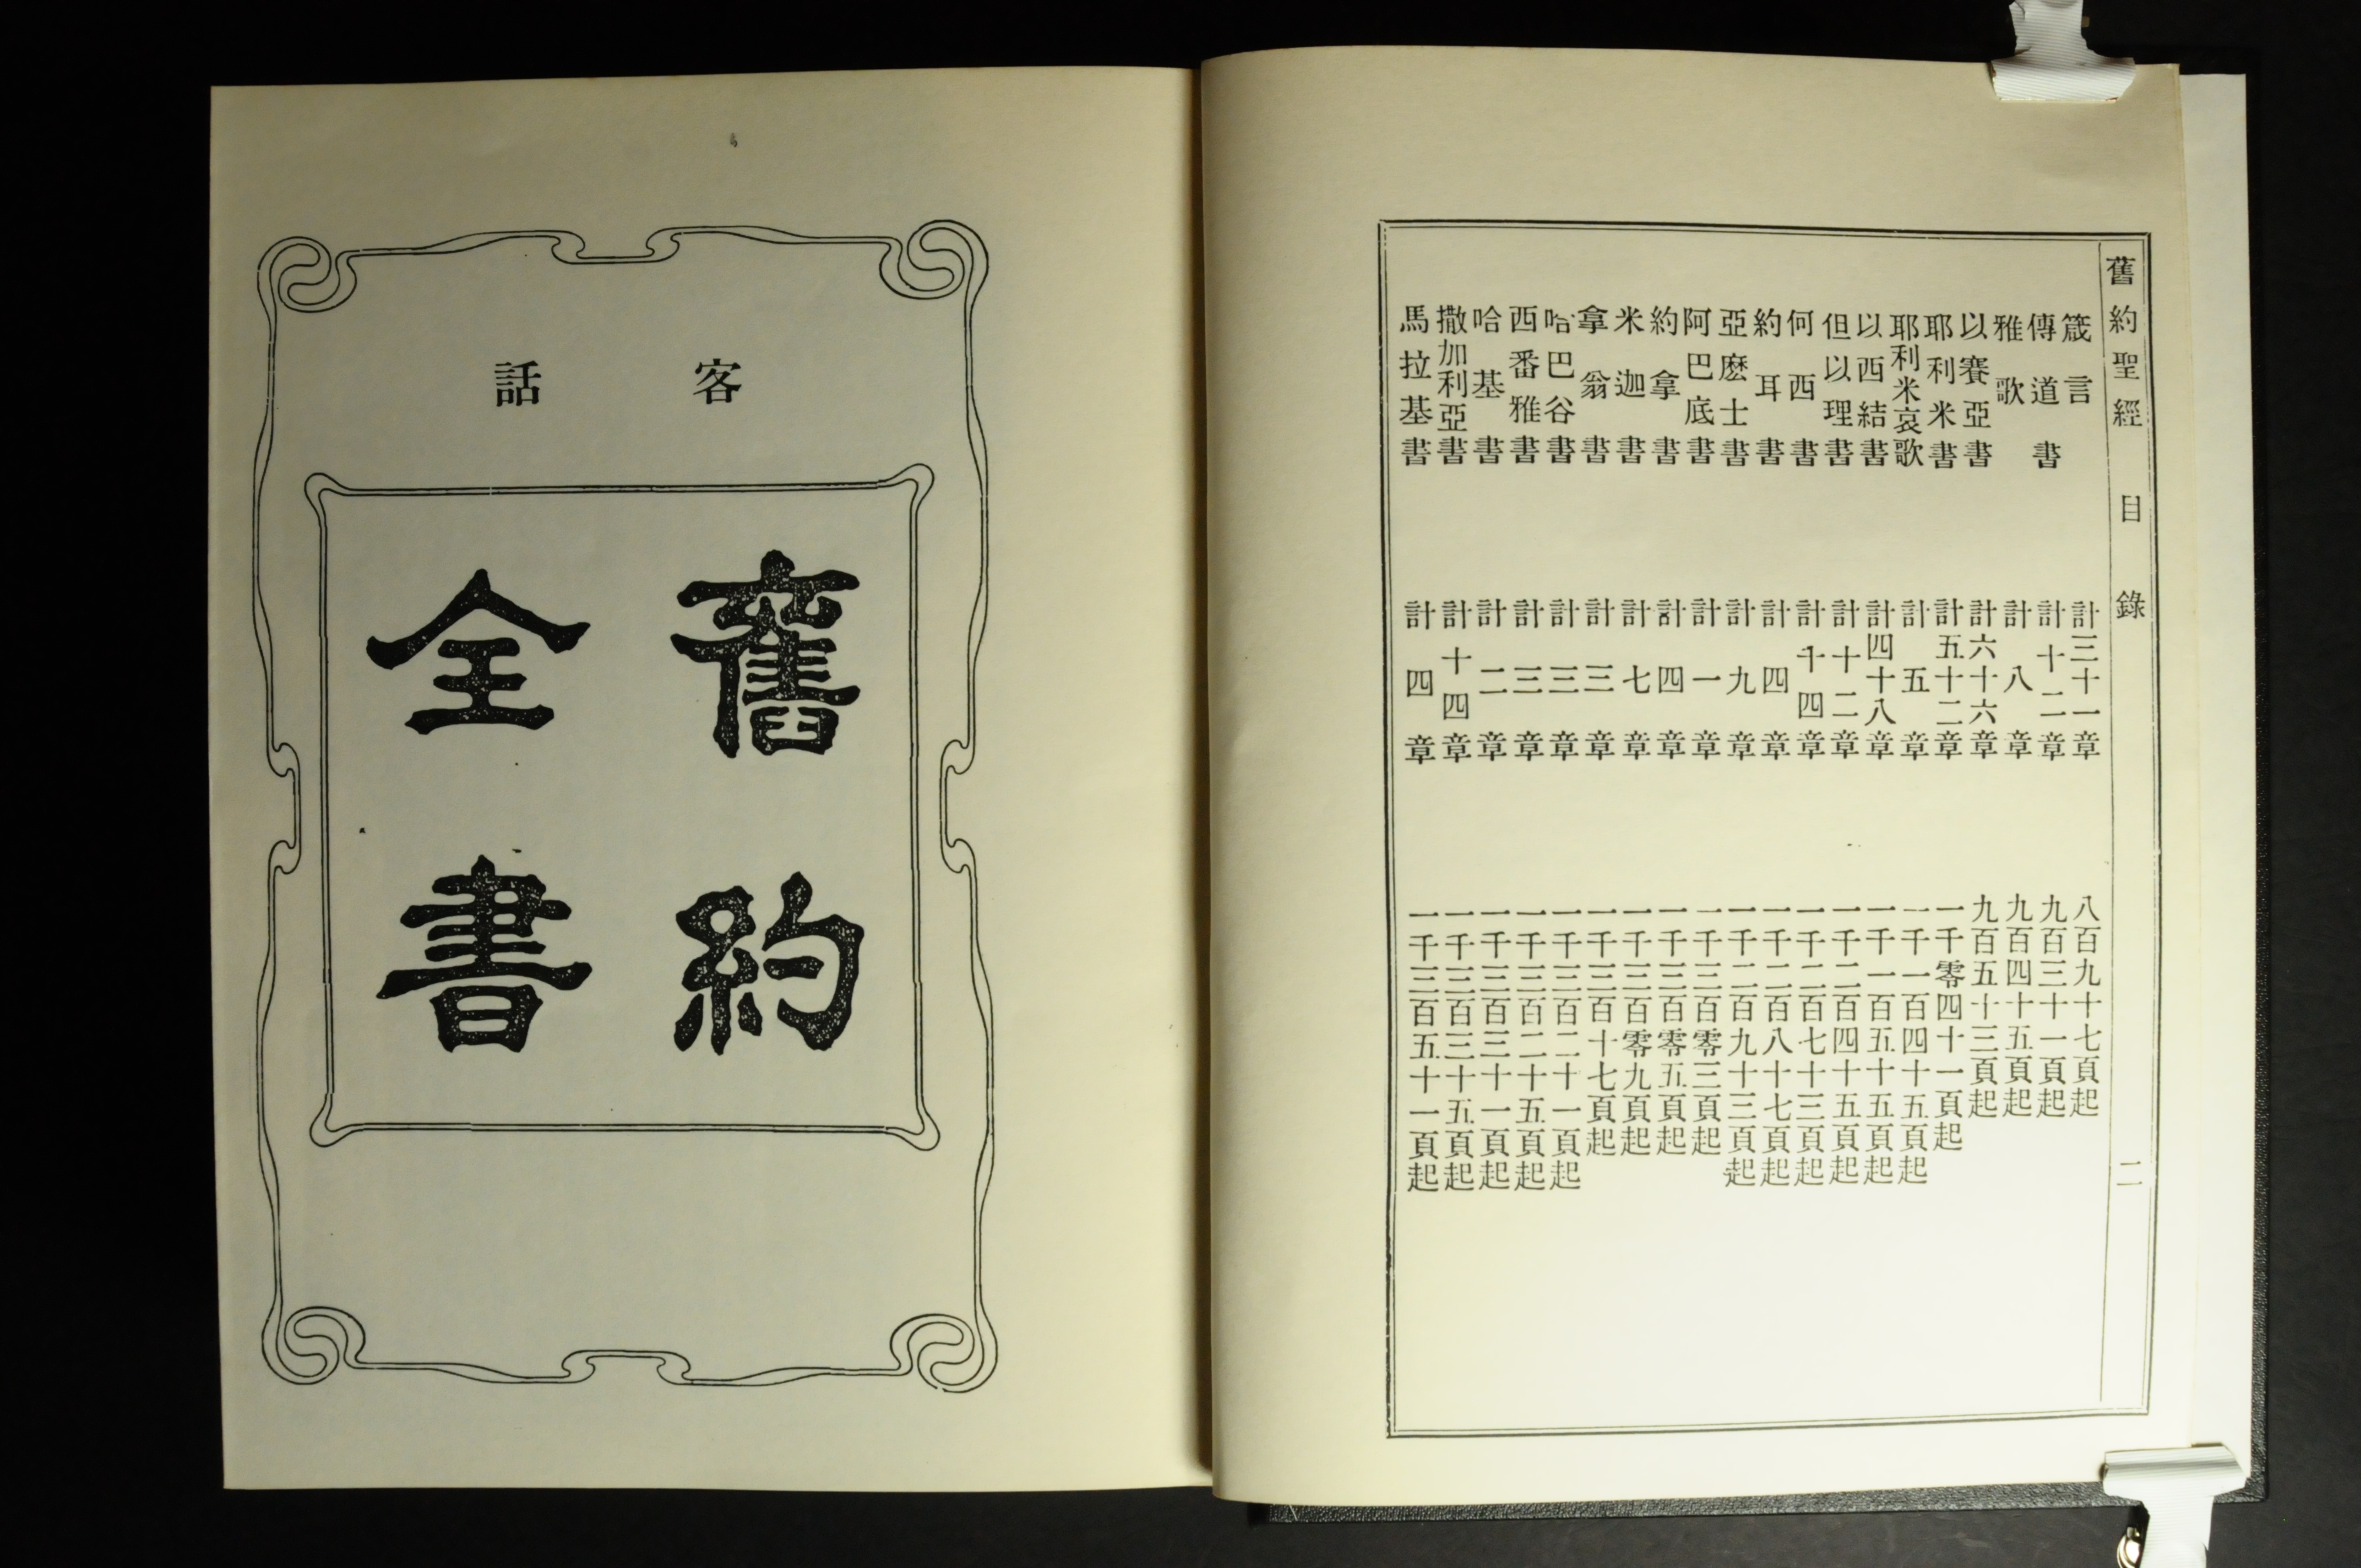 舊約聖經 目錄 二
箴言 計三十一章 八百九十七頁起
傳道書 計十二章 九百三十一頁起
雅歌 計八章 九百四十五頁起
以賽亞書 計六十六章 九百五十三頁起
耶利米書 計五十二章 一千零四十一頁起
耶利米哀歌 計五章 一千一百四十五頁起
以西結書 計四十八章 一千一百五十五頁起
但以理書 計十二章 一千二百四十五頁起
何西書 計千四章 一千二百七十三頁起
約耳書 計四章 一千二百八十七頁起
亞麽士書 計九章 一千二百九十三頁起
阿巴底書 計一章 一千三百零三頁起
約拿書 計四章 一千三百零五頁起
米迦書 計七章 一千三百零九頁起
拿翁書 計三章 一千三百十七頁起
哈巴谷書 計三章 一千三百二十一頁起
西番雅書 計三章 一千三百二十五頁起
哈基書 計二章 一千三百三十一頁起
撒加利亞書 計十四章 一千三百三十五頁起
馬拉基書 計四章 一千三百五十一頁起
客話
舊約
全書